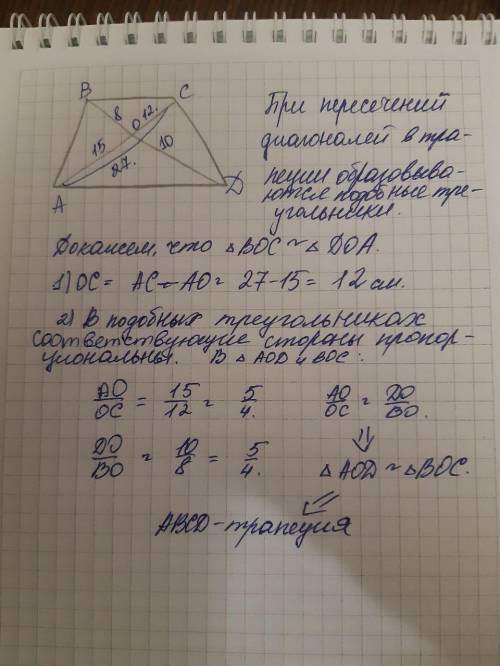 B
C
8
12.
O
15
10
27.
A
D
При пересечений
диагоналей в тра-
пеции образовыва-
ются подобные тре-
угольники.
Докажем, что △BOC ~ △DOA.
1) OC = AC - AO = 27 - 15 = 12 см.
2) В подобных треугольниках
соответствующие стороны пропор-
циональны. В △AOD и BOC:
AO/OC = 15/12 = 5/4. AO/OC = DO/BO.
⇓
DO/BO = 10/8 = 5/4. △AOD ~ △BOC.
⇙
ABCD - трапеция